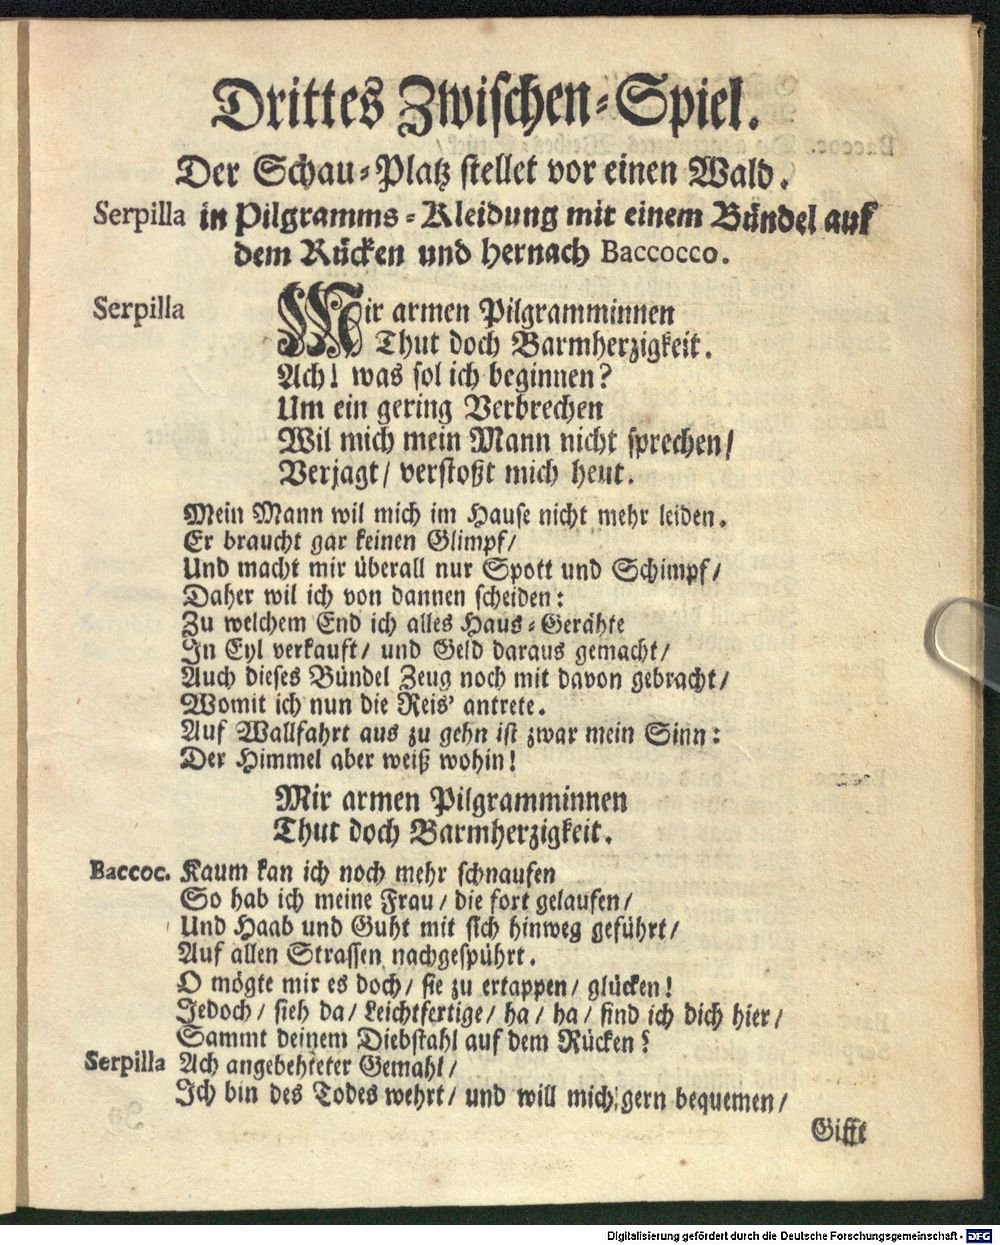 Drittes Zwischen-Spiel.
Der Schau-Platz stellet vor einen Wald.
Serpilla in Pilgramms-Kleidung mit einem Bündel auf
dem Rücken und hernach Baccocco.
Serpilla Mir armen Pilgramminnen
Thut doch Barmherzigkeit.
Ach! was sol ich beginnen?
Um ein gering Verbrechen
Wil mich mein Mann nicht sprechen/
Verjagt/ verstoßt mich heut.
Mein Mann wil mich im Hause nicht mehr leiden.
Er braucht gar keinen Glimpf/
Und macht mir überall nur Spott und Schimpf/
Daher wil ich von dannen scheiden:
Zu welchem End ich alles Haus-Gerähte
In Eyl verkauft/ und Geld daraus gemacht/
Auch dieses Bündel Zeug noch mit davon gebracht/
Womit ich nun die Reis' antrete.
Auf Wallfahrt aus zu gehn ist zwar mein Sinn:
Der Himmel aber weiß wohin!
Mir armen Pilgramminnen
Thut doch Barmherzigkeit.
Baccoc. Kaum kan ich noch mehr schnaufen
So hab ich meine Frau/ die fort gelaufen/
Und Haab und Guht mit sich hinweg geführt/
Auf allen Strassen nachgespührt.
O mögte mir es doch/ sie zu ertappen/ glücken!
Jedoch/ sieh da/ Leichtfertige/ ha/ ha/ find ich dich hier/
Sammt deinem Diebstahl auf dem Rücken?
Serpilla Ach angebehteter Gemahl/
Ich bin des Todes wehrt/ und will mich gern bequemen/
Gifft
Digitalisierung gefördert durch die Deutsche Forschungsgemeinschaft - DFG